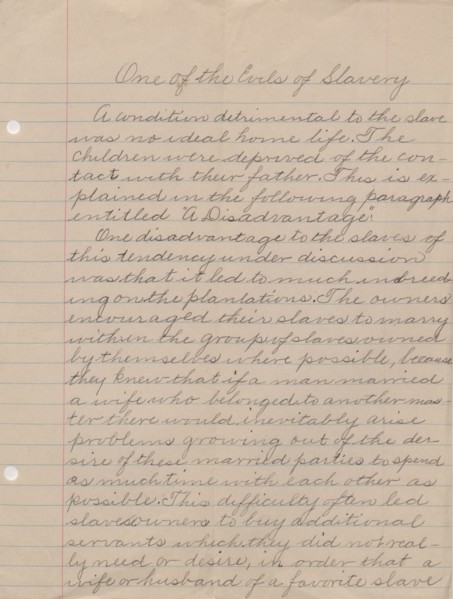 One of the Evils of Slavery
A condition detrimental to the slave
was no ideal home life. The
children were deprived of the con-
tact with their father. This is ex-
plained in the following paragraph
entitled "A Disadvantage".
One disadvantage to the slaves of
this tendency under discussion
was that it led to much inbreed
ing on the plantations. The owners
encouraged their slaves to marry
within the group of slaves owned
by themselves where possible, because
they knew that if a man married
a wife who belonged to another mas-
ter there would inevitably arise
problems growing out of the de-
sire of these married parties to spend
as much time with each other as
possible. This difficulty often led
slaveowners to buy additional
servants which they did not real-
ly need or desire, in order that a
wife or husband of a favorite slave